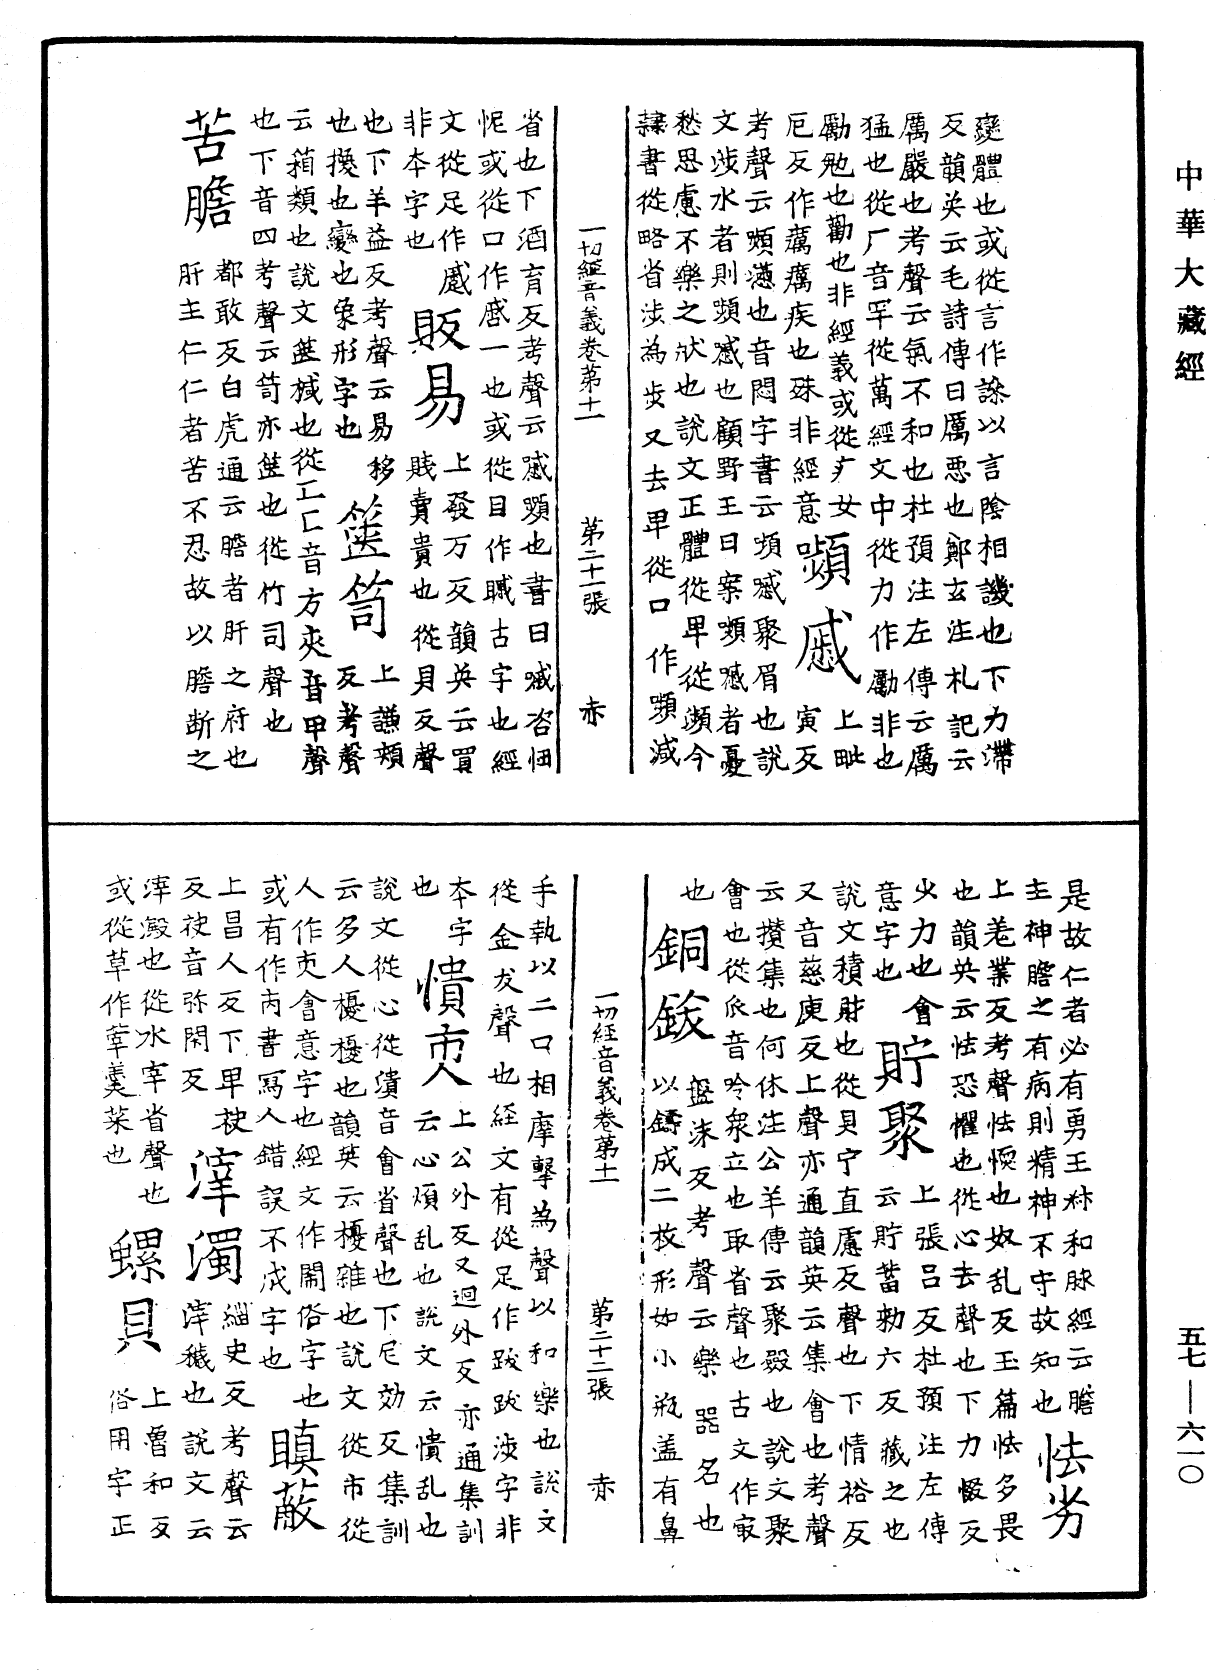 中華大藏經
變體也或從言作譺以言陰相譏也下力滯
反韻英云毛詩傳曰厲惡也鄭玄注札記云
厲嚴也考聲云氣不和也杜預注左傳云厲
猛也從厂音罕從萬經文中從力作勵非也
勵勉也勸也非經義或從疒女
厄反作癘癘疾也殊非經意 嚬慼 上毗寅反
考聲云嚬懣也音悶字書云嚬慼聚眉也說
文涉水者則顰慼也顧野王曰案嚬慼者憂
愁思慮不樂之狀也說文正體從卑從瀕今
隸書從略省涉為步又去卑從口作嚬減
一切經音義卷第十一 第二十一張 赤
省也下酒育反考聲云慼嚬也書曰慼咨忸
怩或從口作嘁一也或從目作䁞古字也經
文從足作蹙
非本字也 販易 上發万反韻英云買賤賣貴也從貝反聲
也下羊益反考聲云易移
也換也變也象形字也 篋笥 上謙頰反考聲
云箱類也說文篋椷也從匚匚音方夾音甲聲
也下音四考聲云笥亦篋也從竹司聲也
苦膽 都敢反白虎通云膽者肝之府也
肝主仁仁者苦不忍故以膽断之
是故仁者必有勇王叔和脉經云膽
主神膽之有病則精神不守故知也 怯劣
上羗業反考聲怯愞也奴乱反玉篇怯多畏
也韻英云怯恐懼也從心去聲也下力惙反
少力也會
意字也 貯聚 上張呂反杜預注左傳云貯蓄勑六反藏之也
說文積財也從貝宁直慮反聲也下情裕反
又音慈庾反上聲亦通韻英云集會也考聲
云攢集也何休注公羊傳云聚斂也說文聚
會也從㐺音吟衆立也取省聲也古文作冣
也 銅鈸 盤沫反考聲云樂器名也以鑄成二枚形如小瓶盖有鼻
一切經音義卷第十一 第二十二張 赤
手執以二口相摩擊為聲以和樂也說文
從金犮聲也経文有從足作跋跋涉字非
本字
也 憒夾 上公外反又迴外反亦通集訓云心煩乱也說文云憒乱也
說文從心從潰音會省聲也下尼効反集訓
云多人擾擾也韻英云擾雜也說文從市從
人作㕰會意字也經文作閙俗字也
或有作丙書冩人錯誤不成字也 瞋蔽
上昌人反下卑袂
反袂音弥閉反 滓濁 緇史反考聲云滓穢也說文云
滓澱也從水宰省聲也
或從草作䔂羹菜也 螺貝 上魯和反俗用字正
五七—六一〇